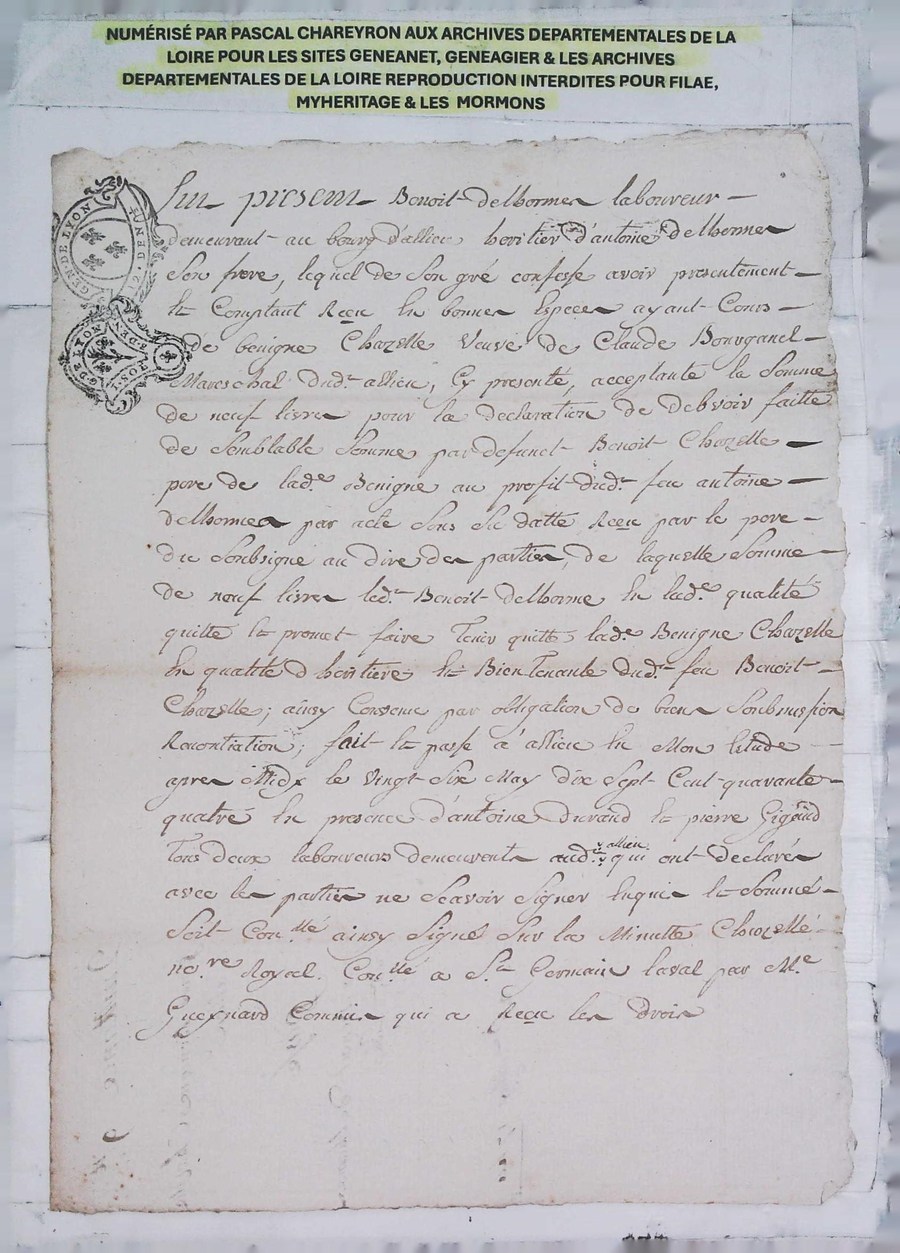 NUMÉRISÉ PAR PASCAL CHAREYRON AUX ARCHIVES DEPARTEMENTALES DE LA
LOIRE POUR LES SITES GENEANET, GENEAGIER & LES ARCHIVES
DEPARTEMENTALES DE LA LOIRE REPRODUCTION INTERDITES POUR FILAE,
MYHERITAGE & LES MORMONS
GEN DE LYON
present Benoit delhomme laboureur
demeurant au bourg d'allieu heritier d'antoine delhomme
Son frere, lequel de Son gré confesse avoir presentement
et Comptant Receu En bonnes Especes ayant Cours
de benigne Chazelle Veuve de Claude
Mareschal dud.t allieu, Cy presente, acceptante la Somme
de neuf livres pour la declaration de debvoir faitte
de Semblable Somme par defunct Benoit Chazelle
pere de lad.e Benigne au profit dud.t feu antoine
delhomme par acte Sous Sa datte Receu par le pere
du Soubsigné au dire des parties, de laquelle Somme
de neuf livres led.t Benoit delhomme En lad.e qualité
quitte et promet faire Tenir quitte lad.e Benigne Chazelle
En qualité d'heritiere et BienTenante dud.t feu Benoit
Chazelle; ainsy Convenu par obligation de biens Soubmission
Renontiation; fait et passé a allieu En Mon Etude
apres Midy le Vingt Six May dix Sept Cent quarante
quatre En presence d'antoine durand et pierre Gigand
Tous deux laboureurs demeurents aud.t allieu qui ont declaré
avec les parties ne Scavoir Signer Enquis et Sommé
Soit Con.llé ainsy Signé Sur la Minutte Chazelle
no.re Royal. Con.llé a S.t Germain laval par M.e
Commis qui a Receu les drois